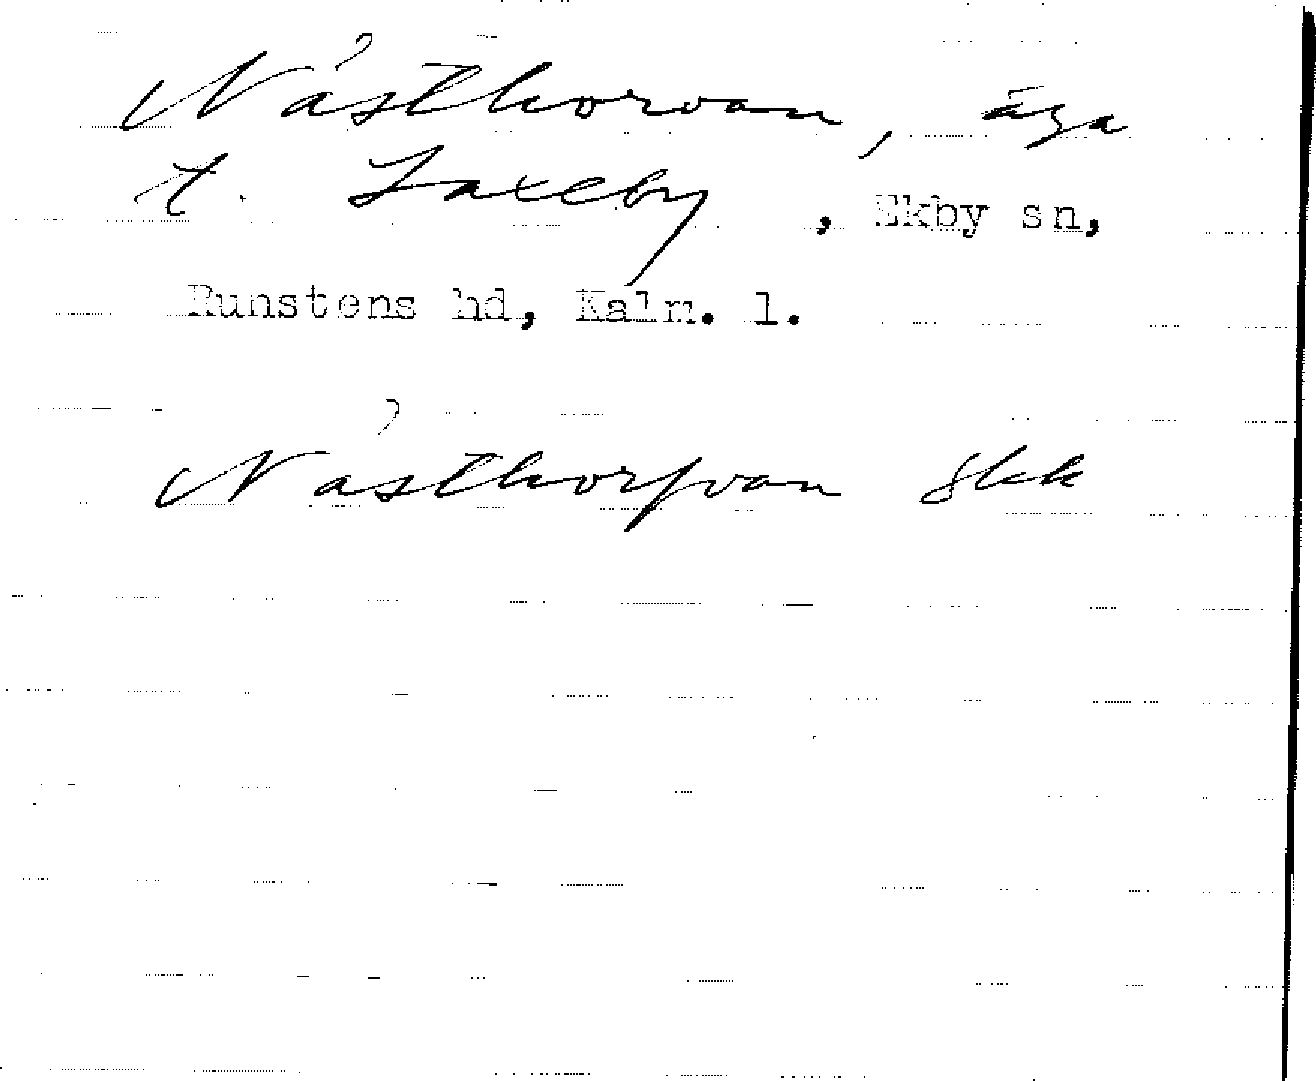 Nåsthorvan, äga
t. Laxeby, Ekby sn,
Runstens hd, Kalm. l.
Nåsthorfvan Skk